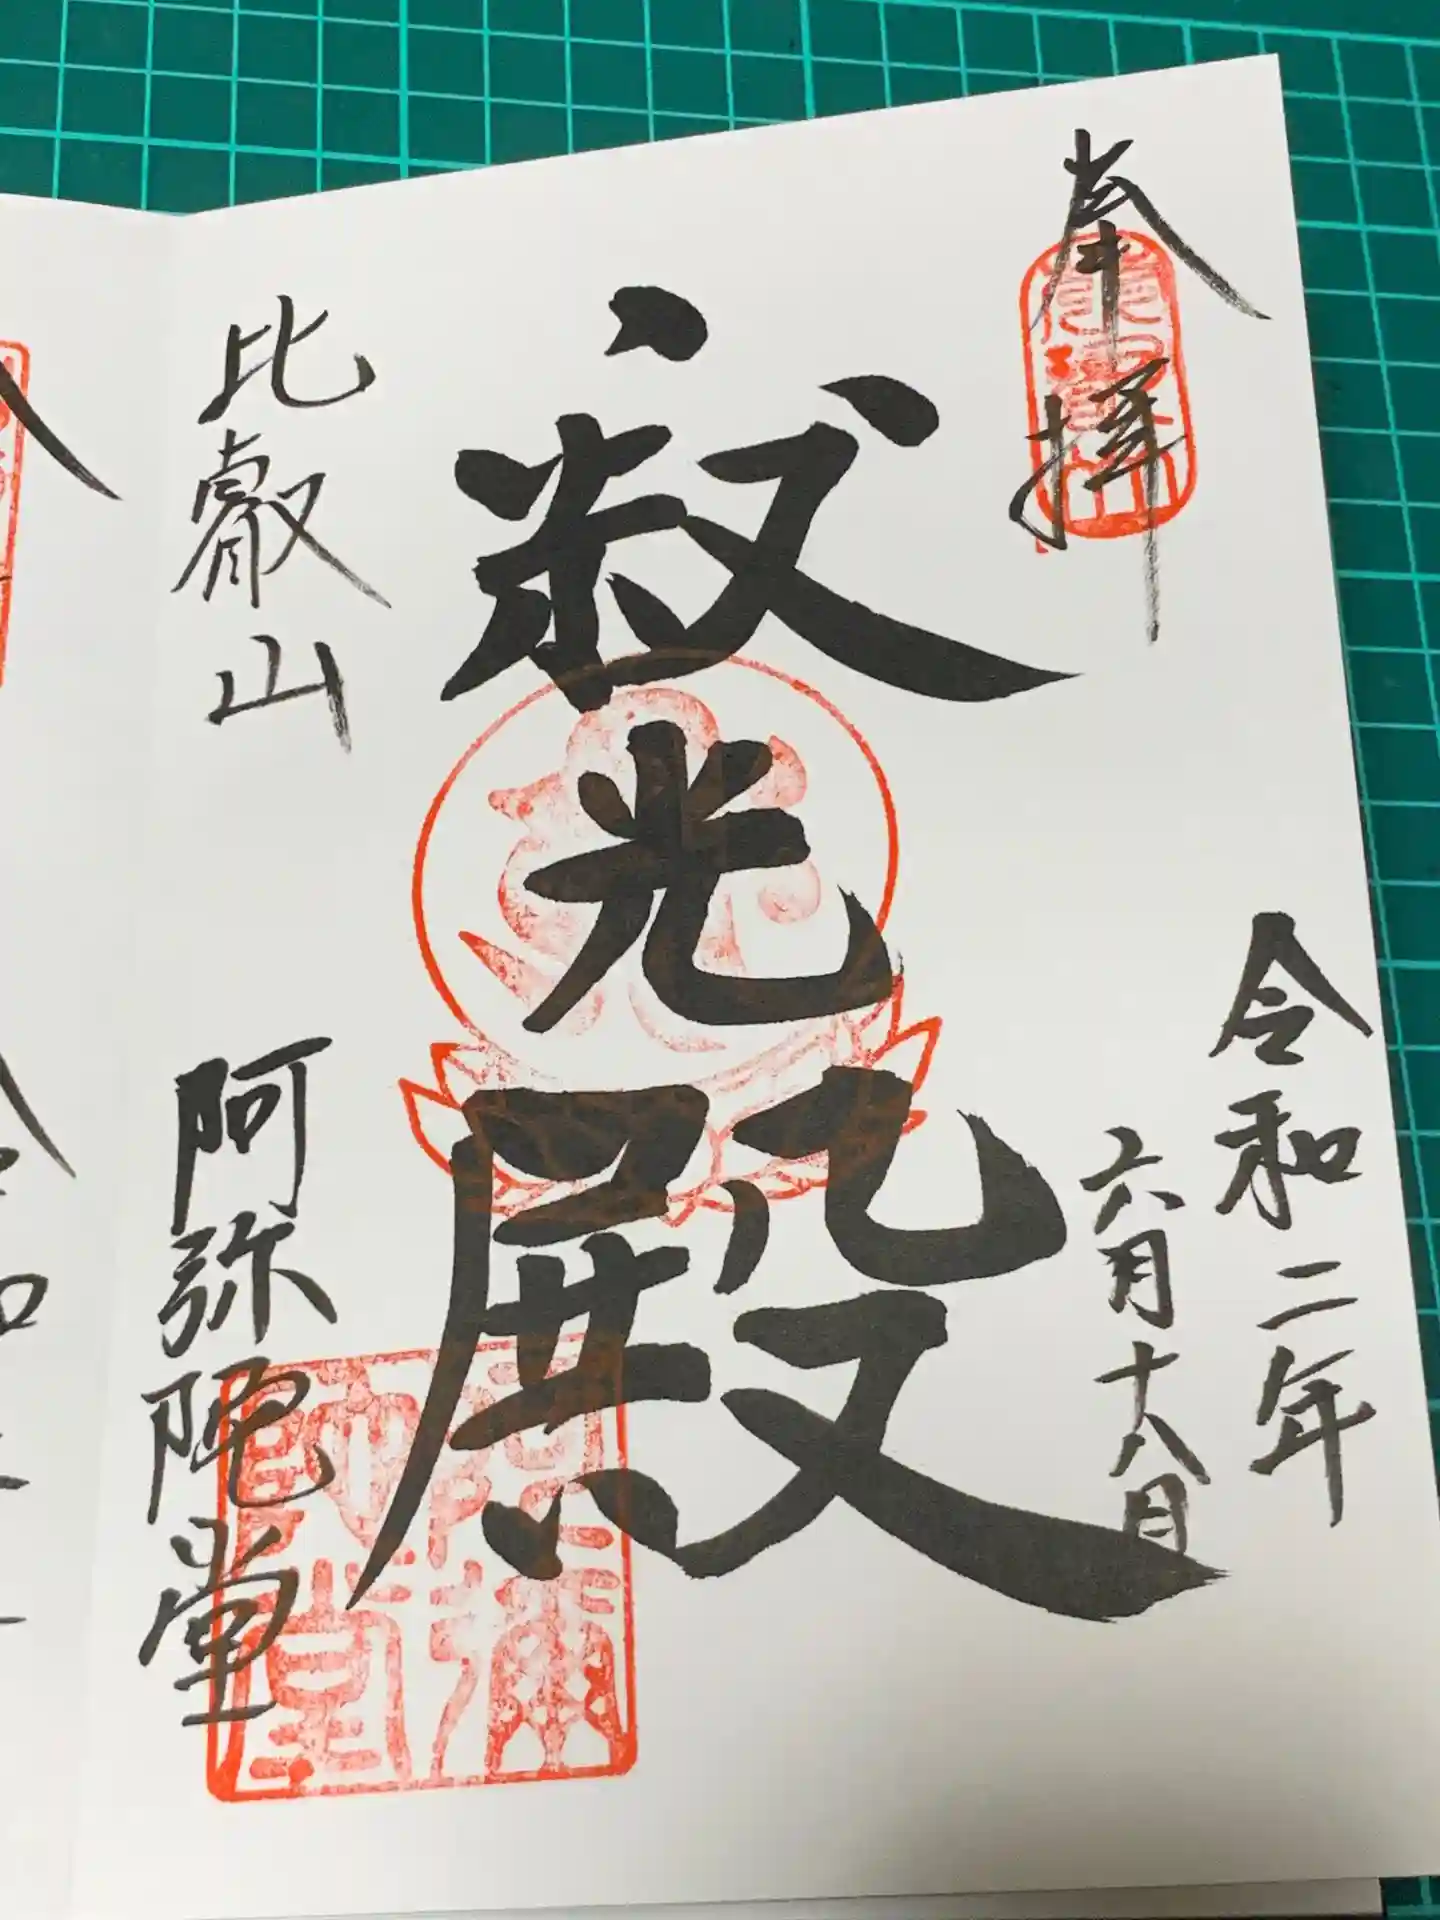 奉拝
令和二年
六月十八日
寂光殿
比叡山
阿弥陀堂
阿彌
陀堂